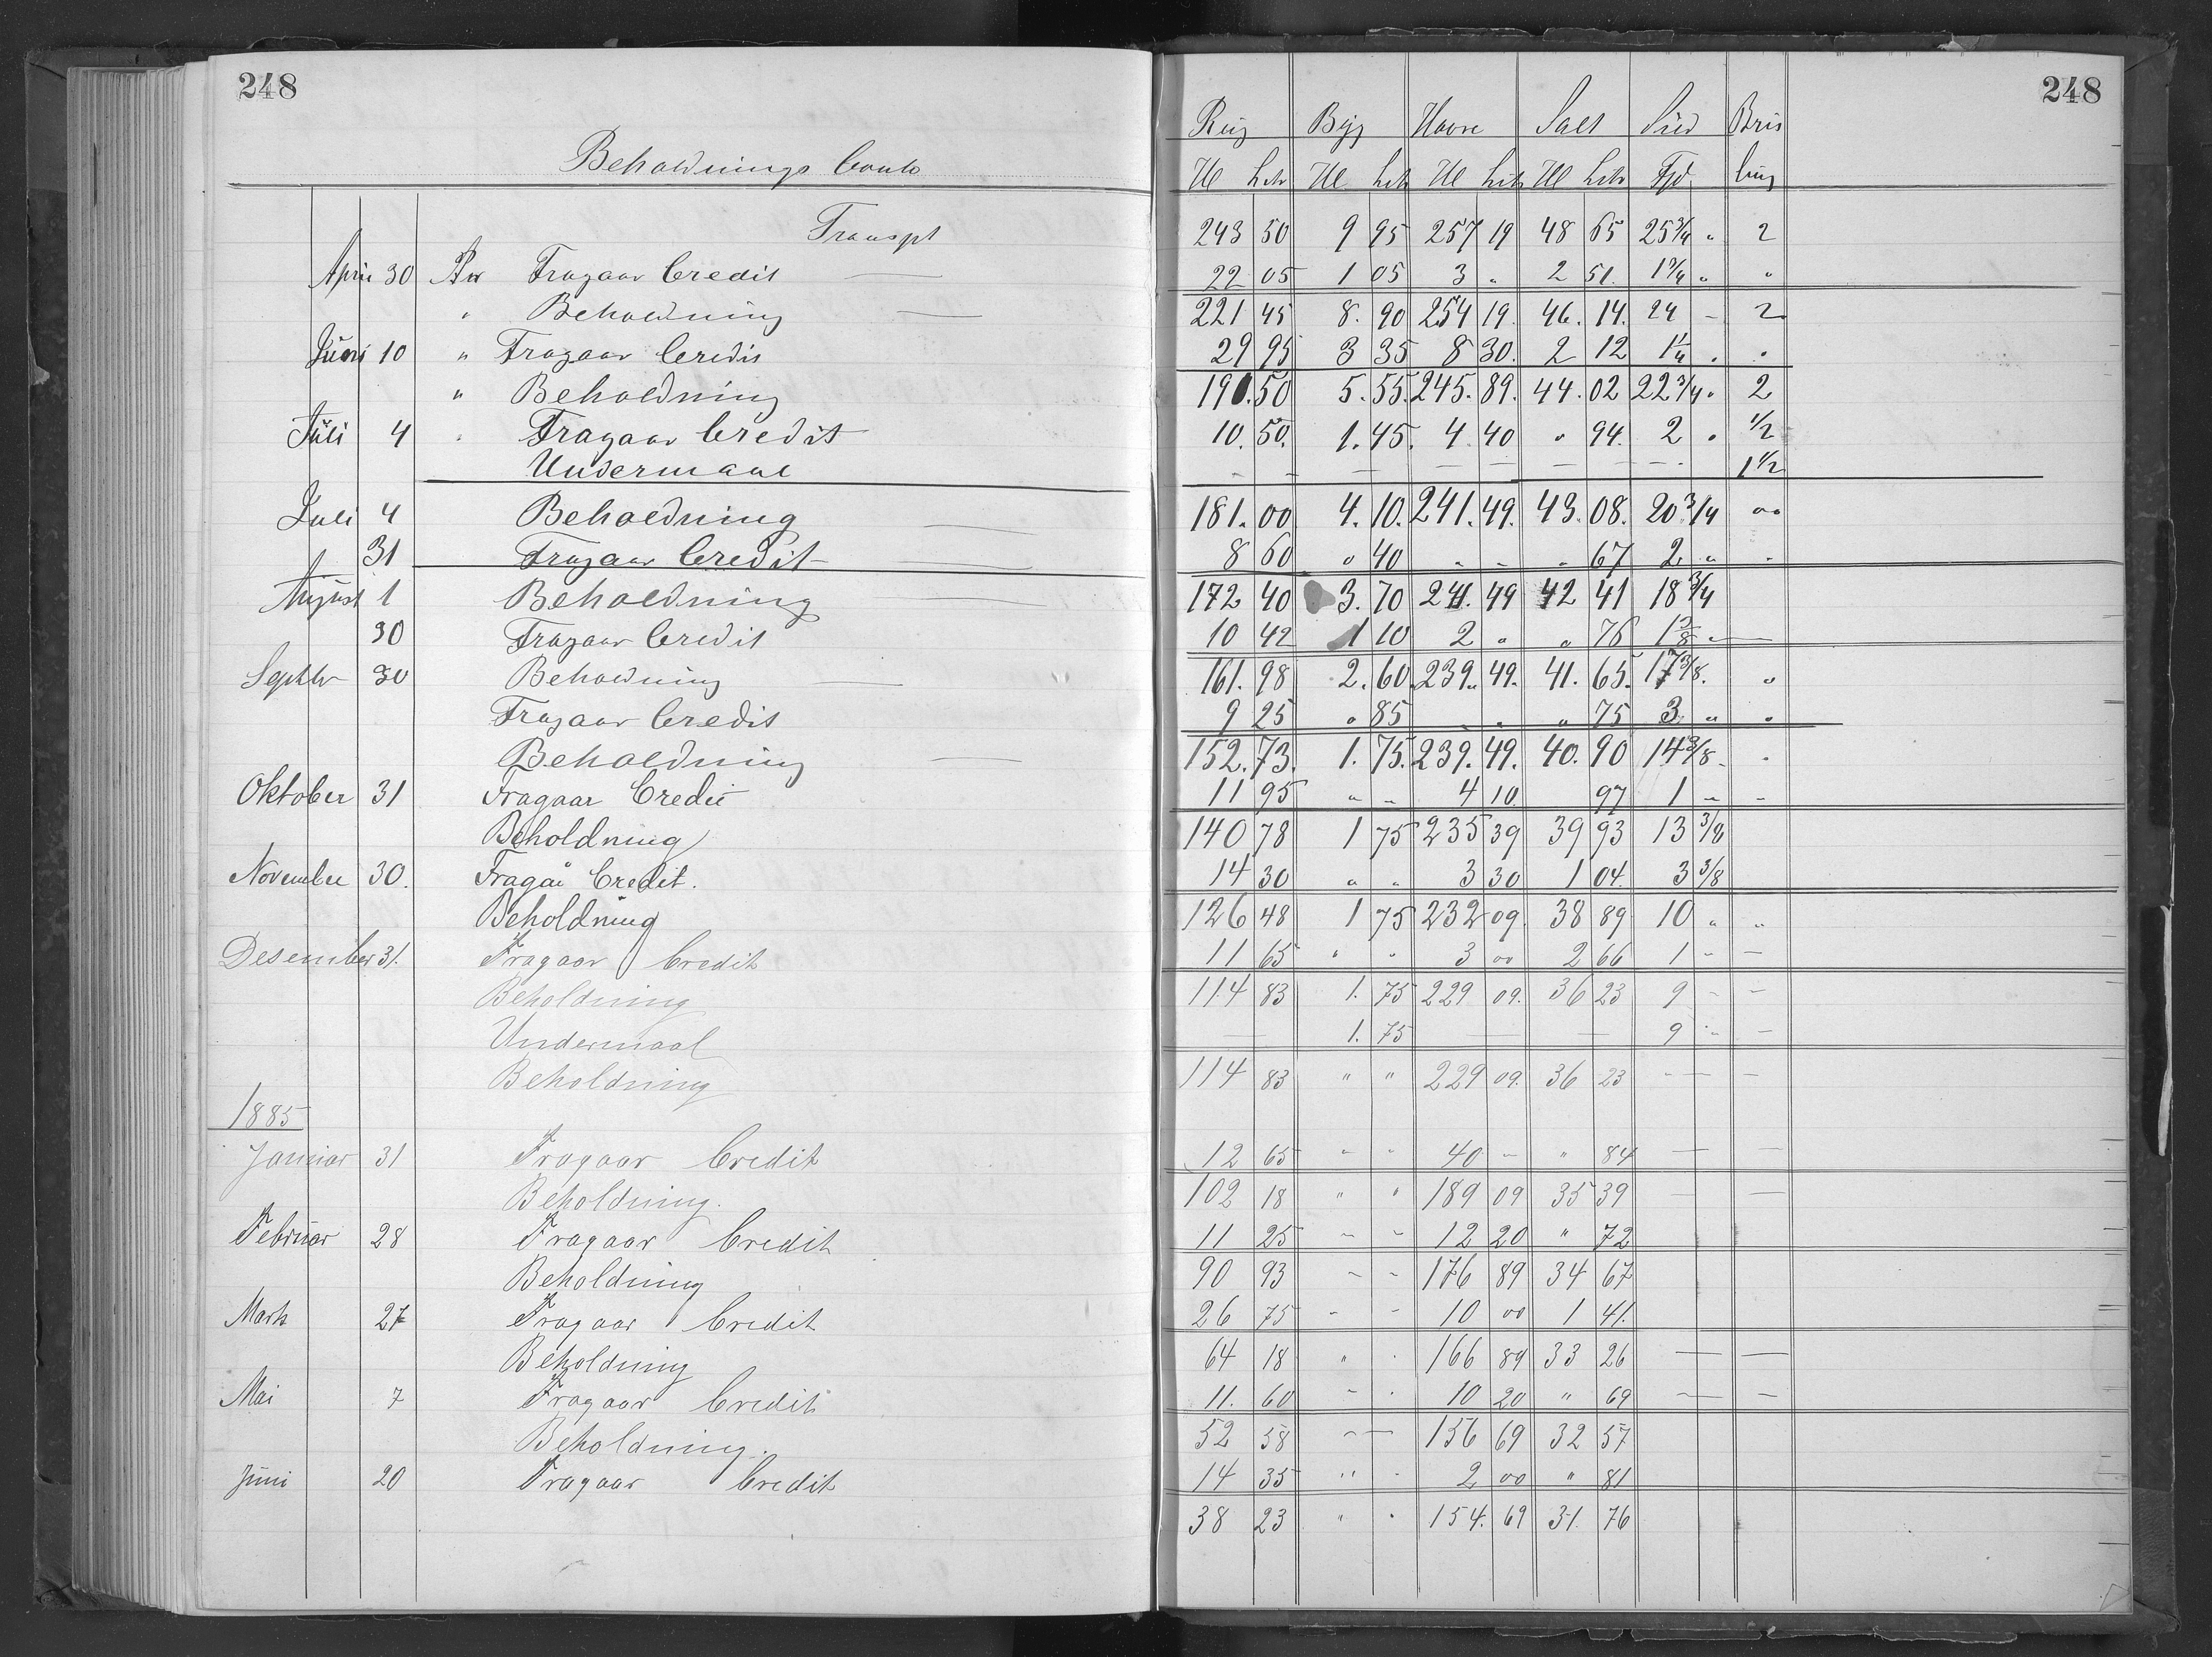 248 248
Beholdnings Conto
Rug Byg Havre Salt Sild Bris
Hl Ltr Hl Ltr Hl Ltr Hl Ltr Tjd ling
Transpt 243 50 9 95 257 19 48 65 25 3/4 " 2
April 30 Fragaar Credit 22 05 1 05 3 " 2 51. 1 3/4 " "
" Beholdning 221 45 8. 90 254 19. 46. 14. 24 - 2
Juni 10 " Fragaar Credit 29 95 3 35 8 30. 2 12 1 1/4 " "
" Beholdning 190. 50 5. 55. 245. 89. 44. 02 22 3/4 " 2
Juli 4 " Fragaar Credit 10. 50. 1. 45. 4 40 " 94. 2 " 1/2
Undermaal - - - - - - - - - 1 1/2
Juli 4 Beholdning 181. 00 4. 10. 241. 49. 43. 08. 20 3/4 ""
31 Fragaar Credit 8 60 " 40 " " " 67 2 " "
August 1 Beholdning 172 40 3. 70 241. 49 42 41 18 3/4
30 Fragaar Credit 10 42 1 10 2 " " 76 1 3/8 "
Septbr 30 Beholdning 161. 98 2. 60. 239. 49. 41. 65. 17 3/8. "
Fragaar Credit 9 25 " 85 " " " 75 3 " "
Beholdning 152. 73. 1. 75. 239. 49. 40. 90 14 3/8 "
Oktober 31 Fragaar Credit 11 95 " " 4 10. 97 1 " "
Beholdning 140 78 1 75 235 39 39 93 13 3/8
November 30. Fragår Credit. 14 30 " " 3 30 1 04. 3 3/8
Beholdning 126 48 1 75 232 09. 38 89 10 " "
Desember 31. Fragaar Credit 11 65 " " 3 00 2 66 1 " -
Beholdning 114 83 1. 75 229 09. 36 23 9 - -
Undermaal - 1. 75 - - 9 " -
Beholdning 114 83 " " 229 09. 36 23 - - -
1885
Januar 31 Fragaar Credit 12 65 " " 40 - " 84 - -
Beholdning. 102 18 " " 189 09 35 39 - -
Februar 28 Fragaar Credit 11 25 - - 12 20 " 72
Beholdning 90 93 - - 176 89 34 67
Marts 27 Fragaar Credit 26 75 - - 10 00 1 41.
Beholdning 64 18 " " 166 89 33 26 - -
Mai 7 Fragaar Credit 11. 60 - " 10 20 " 69 - -
Beholdning. 52 58 - - 156 69 32 57
Juni 20 Fragaar Credit 14 35 " - 2 00 " 81
38 23 " " 154. 69 31. 76